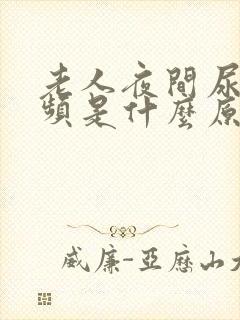 老人夜間尿
頻是什麼原
威廉-亞歷山大